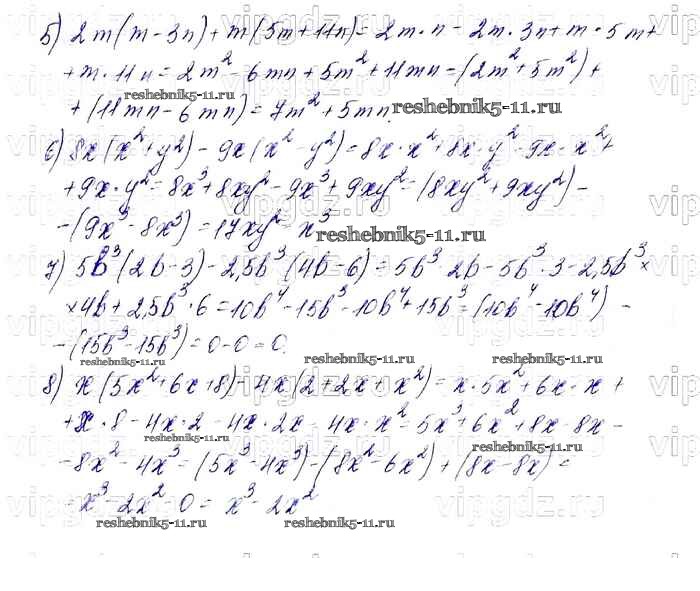 5) 2m(m-3n)+m(5m+11n)=2m·n-2m·3n+m·5m+
+m·11n=2m²-6mn+5m²+11mn=(2m²+5m²)+
+(11mn-6mn)=7m²+5mn.
reshebnik5-11.ru
reshebnik5-11.ru
6) 8x(x²+y²)-9x(x²-y²)=8x·x²+8x·y²-9x·x²+
+9x·y²=8x³+8xy²-9x³+9xy²=(8xy²+9xy²)-
-(9x³-8x³)=17xy²-x³
reshebnik5-11.ru
7) 5b³(2b-3)-2,5b³(4b-6)=5b³·2b-5b³·3-2,5b³×
×4b+2,5b³·6=10b⁴-15b³-10b⁴+15b³=(10b⁴-10b⁴)-
-(15b³-15b³)=0-0=0.
reshebnik5-11.ru
reshebnik5-11.ru
8) x(5x²+6x+8)-4x(2+2x+x²)=x·5x²+6x·x+
+x·8-4x·2-4x·2x-4x·x²=5x³+6x²+8x-8x-
reshebnik5-11.ru
reshebnik5-11.ru
-8x²-4x³=(5x³-4x³)-(8x²-6x²)+(8x-8x)=
=x³-2x²-0=x³-2x²
reshebnik5-11.ru
reshebnik5-11.ru
vipgdz.ru